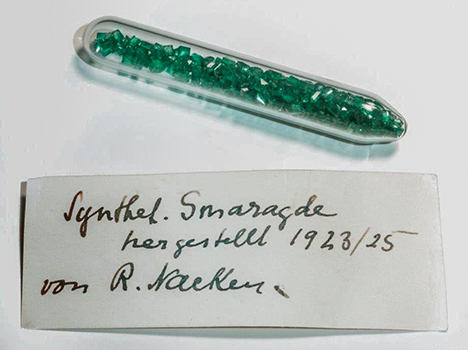 Synthet. Smaragde
hergestellt 1923/25
von R. Nacken.